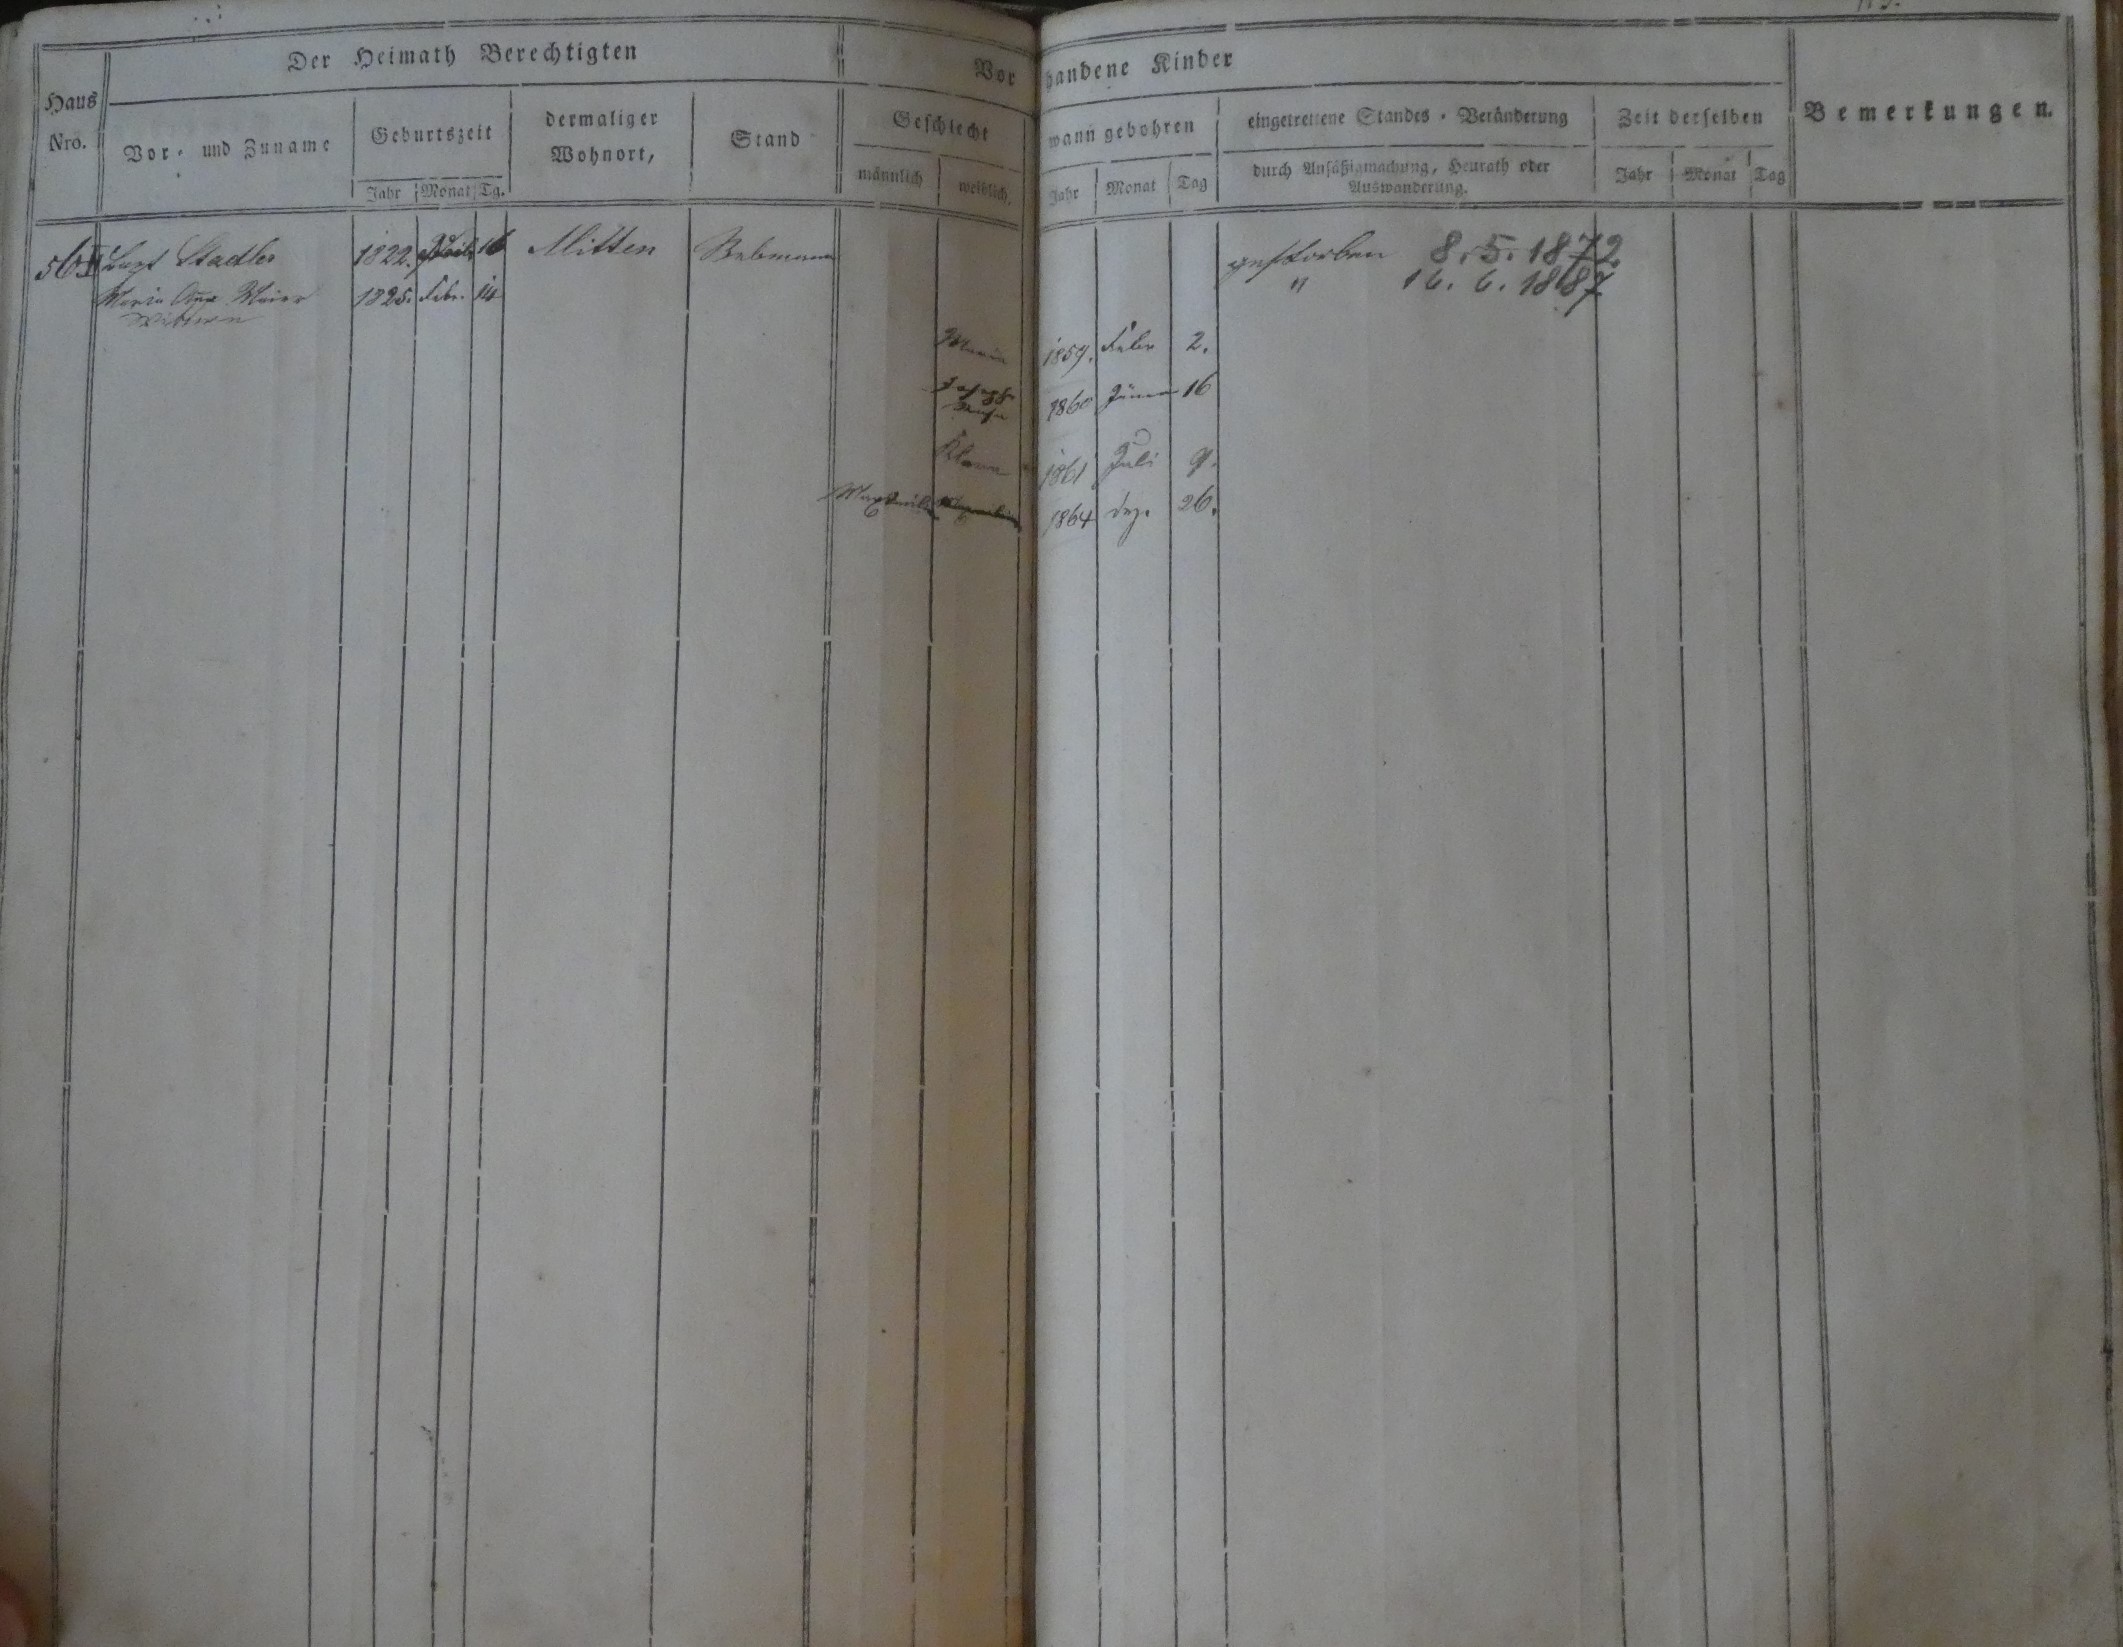 Der Heimath Berechtigten
Vorhandene Kinder
Haus
Nro.
Vor- und Zuname
Geburtszeit
dermaliger
Wohnort,
Stand
Geschlecht
wann gebohren
eingetrettene Standes-Veränderung
Zeit derselben
Bemerkungen.
männlich
weiblich.
durch Ansäßigmachung, Heurath oder
Auswanderung.
Jahr Monat Tg.
Jahr Monat Tag
Jahr Monat Tag
56 Stadler 1822. 16 Mitten Rebmann gestorben 8.5.1872.
Maria Maier 1825. Febr. 14 " 16.6.1887
Wittwe
Maria 1859. Febr 2.
Josepha 1860 Jänner 16
Klara 1861 Juli 9.
1864 Dez. 26.